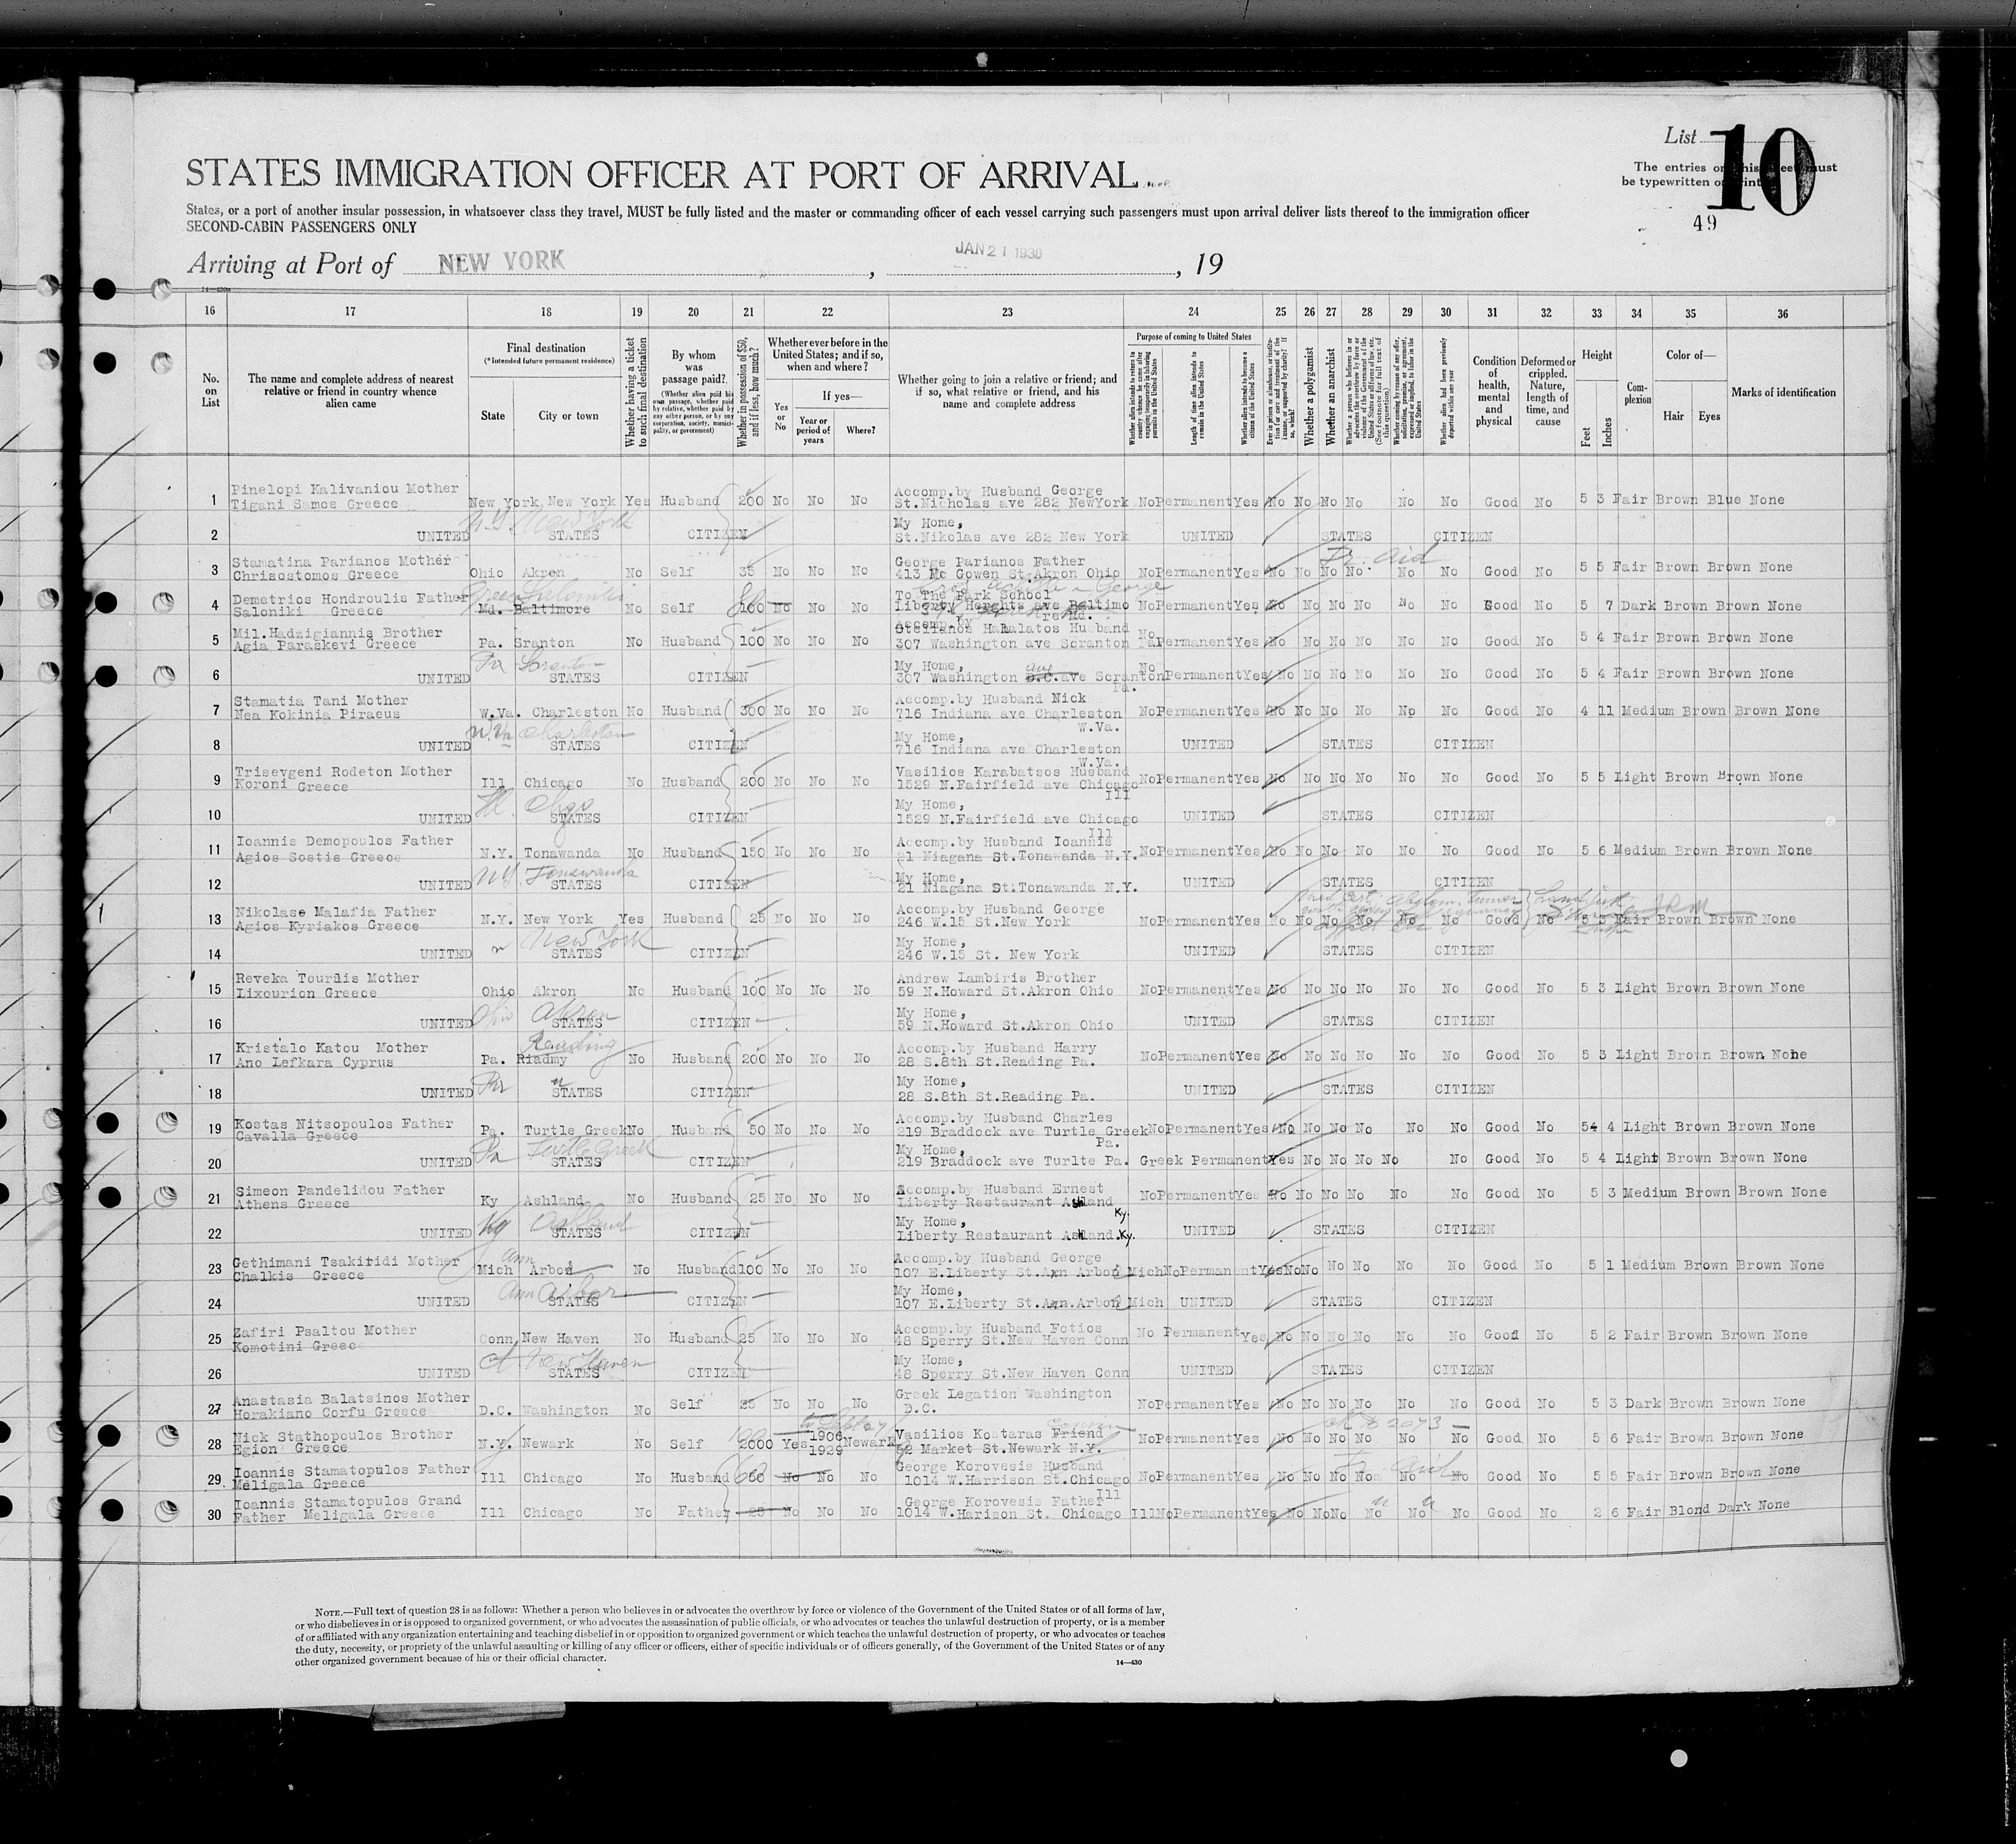 List 10
The entries on this sheet must
be typewritten or printed
49
STATES IMMIGRATION OFFICER AT PORT OF ARRIVAL
States, or a port of another insular possession, in whatsoever class they travel, MUST be fully listed and the master or commanding officer of each vessel carrying such passengers must upon arrival deliver lists thereof to the immigration officer
SECOND-CABIN PASSENGERS ONLY
Arriving at Port of NEW YORK , JAN 21 1930 , 19
16 17 18 19 20 21 22 23 24 25 26 27 28 29 30 31 32 33 34 35 36
No. on List
The name and complete address of nearest relative or friend in country whence alien came
Final destination
(*Intended future permanent residence)
State
City or town
Whether having a ticket to such final destination
By whom was passage paid?
(Whether alien paid his own passage, whether paid by relative, whether paid by any other person, or by any corporation, society, municipality, or government)
Whether in possession of $50, and if less, how much?
Whether ever before in the United States; and if so, when and where?
Yes or No
If yes—
Year or period of years
Where?
Whether going to join a relative or friend; and if so, what relative or friend, and his name and complete address
Purpose of coming to United States
Whether alien intends to return to country whence he came after engaging temporarily in laboring pursuits in the United States
Length of time alien intends to remain in the United States
Whether alien intends to become a citizen of the United States
Ever in prison or almshouse, or institution for care and treatment of the insane, or supported by charity? If so, which?
Whether a polygamist
Whether an anarchist
Whether coming by reason of any offer, solicitation, promise, or agreement, expressed or implied, to labor in the United States
Whether alien had been previously deported within one year
Condition of health, mental and physical
Deformed or crippled. Nature, length of time, and cause
Height
Feet
Inches
Complexion
Color of—
Hair
Eyes
Marks of identification
1 Pinelopi Kalivaniou Mother Tigani Samos Greece New York New York Yes Husband 200 No No No Accomp.by Husband George St.Nicholas ave 282 NewYork No Permanent Yes No No No No No No Good No 5 3 Fair Brown Blue None
2 UNITED STATES CITIZEN New York My Home, St.Nikolas ave 282 New York UNITED STATES CITIZEN
3 Stamatina Parianos Mother Chrisostomos Greece Ohio Akron No Self 35 No No No George Parianos Father 413 Mc Gowen St.Akron Ohio No Permanent Yes No No No No No No Good No 5 5 Fair Brown Brown None
4 Demetrios Hondroulis Father Saloniki Greece Md. Baltimore No Self 100 No To The Park School Liberty Heights ave Baltimo re Md. No Permanent Yes No No No No N No Good No 5 7 Dark Brown Brown None
5 Mil.Hadzigiannis Brother Agia Paraskevi Greece Pa. Sranton No Husband 100 No No No Accomp.by Stelianos Hahalatos Husband 307 Washington ave Scranton Pa No Permanent Yes No No No No No No Good No 5 4 Fair Brown Brown None
6 UNITED STATES CITIZEN My Home, 307 Washington D.C. ave Scranton Pa. No Permanent Yes No No No No No No Good No 5 4 Fair Brown Brown None
7 Stamatia Tani Mother Nea Kokinia Piraeus W.Va. Charleston No Husband 300 No No No Accomp.by Husband Nick 716 Indiana ave Charleston W.Va. No Permanent Yes No No No No No No Good No 4 11 Medium Brown Brown None
8 W.Va Charleston UNITED STATES CITIZEN My Home, 716 Indiana ave Charleston W.Va. UNITED STATES CITIZEN
9 Trisevgeni Rodeton Mother Koroni Greece Ill Chicago No Husband 200 No No No Vasilios Karabatsos Husband 1529 N.Fairfield ave Chicago Ill No Permanent Yes No No No No No No Good No 5 5 Light Brown Brown None
10 Ill. Chgo UNITED STATES CITIZEN My Home, 1529 N.Fairfield ave Chicago Ill UNITED STATES CITIZEN
11 Ioannis Demopoulos Father Agios Sostis Greece N.Y. Tonawanda No Husband 150 No No No Accomp.by Husband Ioannis 21 Niagana St.Tonawanda N.Y. No Permanent Yes No No No No No No Good No 5 6 Medium Brown Brown None
12 NY Tonawanda UNITED STATES CITIZEN My Home, 21 Niagana St.Tonawanda N.Y. UNITED STATES CITIZEN
13 Nikolase Malafia Father Agios Kyriakos Greece N.Y. New York Yes Husband 25 No No No Accomp.by Husband George 246 W.15 St.New York No Permanent Yes No No No No No No Good No 5 3 Fair Brown Brown None
14 New York UNITED STATES CITIZEN My Home, 246 W.15 St. New York UNITED STATES CITIZEN
15 Reveka Tourlis Mother Lixourion Greece Ohio Akron No Husband 100 No No No Andrew Lambiris Brother 59 N.Howard St.Akron Ohio No Permanent Yes No No No No No No Good No 5 3 Light Brown Brown None
16 Ohio Akron UNITED STATES CITIZEN My Home, 59 N.Howard St.Akron Ohio UNITED STATES CITIZEN
17 Kristalo Katou Mother Ano Lefkara Cyprus Pa. Riadmy Reading No Husband 200 No No No Accomp.by Husband Harry 28 S.8th St.Reading Pa. No Permanent Yes No No No No No No Good No 5 3 Light Brown Brown None
18 Pa " UNITED STATES CITIZEN My Home, 28 S.8th St.Reading Pa. UNITED STATES CITIZEN
19 Kostas Nitsopoulos Father Cavalla Greece Pa. Turtle Greek No Husband 50 No No No Accomp.by Husband Charles 219 Braddock ave Turtle Greek Pa. No Permanent Yes No No No No No No Good No 54 4 Light Brown Brown None
20 Pa Turtle Creek UNITED STATES CITIZEN My Home, 219 Braddock ave Turlte Pa. Greek Permanent Yes No No No No No Good No 5 4 Light Brown Brown None
21 Simeon Pandelidou Father Athens Greece Ky Ashland No Husband 25 No No No Accomp.by Husband Ernest Liberty Restaurant Ashland Ky. No Permanent Yes No No No No No No Good No 5 3 Medium Brown Brown None
22 Ky Ashland UNITED STATES CITIZEN My Home, Liberty Restaurant Ashland.Ky. UNITED STATES CITIZEN
23 Gethimani Tsakiridi Mother Chalkis Greece Mich Ann Arbor No Husband 100 No No No Accomp.by Husband George 107 E.Liberty St.Ann Arbor Mich No Permanent Yes No No No No No No Good No 5 1 Medium Brown Brown None
24 Ann Arbor UNITED STATES CITIZEN My Home, 107 E.Liberty St.Ann.Arbor Mich UNITED STATES CITIZEN
25 Zafiri Psaltou Mother Komotini Greec Conn, New Haven No Husband 25 No No No Accomp.by Husband Fotios 48 Sperry St.New Haven Conn No Permanent Yes No No No No No No Good No 5 2 Fair Brown Brown None
26 Ct New Haven UNITED STATES CITIZEN My Home, 48 Sperry St.New Haven Conn UNITED STATES CITIZEN
27 Anastasia Balatsinos Mother Horakiano Corfu Greece D.C. Washington No Self 25 No No No Greek Legation Washington D.C. No Permanent Yes No No No No No No Good No 5 3 Dark Brown Brown None
28 Nick Stathopoulos Brother Egion Greece N.Y. Newark No Self 2000 Yes 1906 1929 Newark Vasilios Koataras Friend Cousin 52 Market St.Newark N.Y. No Permanent Yes No No No No No No Good No 5 6 Fair Brown Brown None
29 Ioannis Stamatopulos Father Meligala Greece Ill Chicago No Husband 60 No No No George Korovesis Husband 1014 W.Harrison St.Chicago Ill No Permanent Yes No No No No No No Good No 5 5 Fair Brown Brown None
30 Ioannis Stamatopulos Grand Father Meligala Greece Ill Chicago No Father 25 No No No George Korovesis Father 1014 W.Harison St. Chicago Ill No Permanent Yes No No No No No No Good No 2 6 Fair Blond Dark None
NOTE.—Full text of question 28 is as follows: Whether a person who believes in or advocates the overthrow by force or violence of the Government of the United States or of all forms of law,
or who disbelieves in or is opposed to organized government, or who advocates the assassination of public officials, or who advocates or teaches the unlawful destruction of property, or is a member
of or affiliated with any organization entertaining and teaching disbelief in or opposition to organized government or which teaches the unlawful destruction of property, or who advocates or teaches
the duty, necessity, or propriety of the unlawful assaulting or killing of any officer or officers, either of specific individuals or of officers generally, of the Government of the United States or of any
other organized government because of his or their official character.
14—430